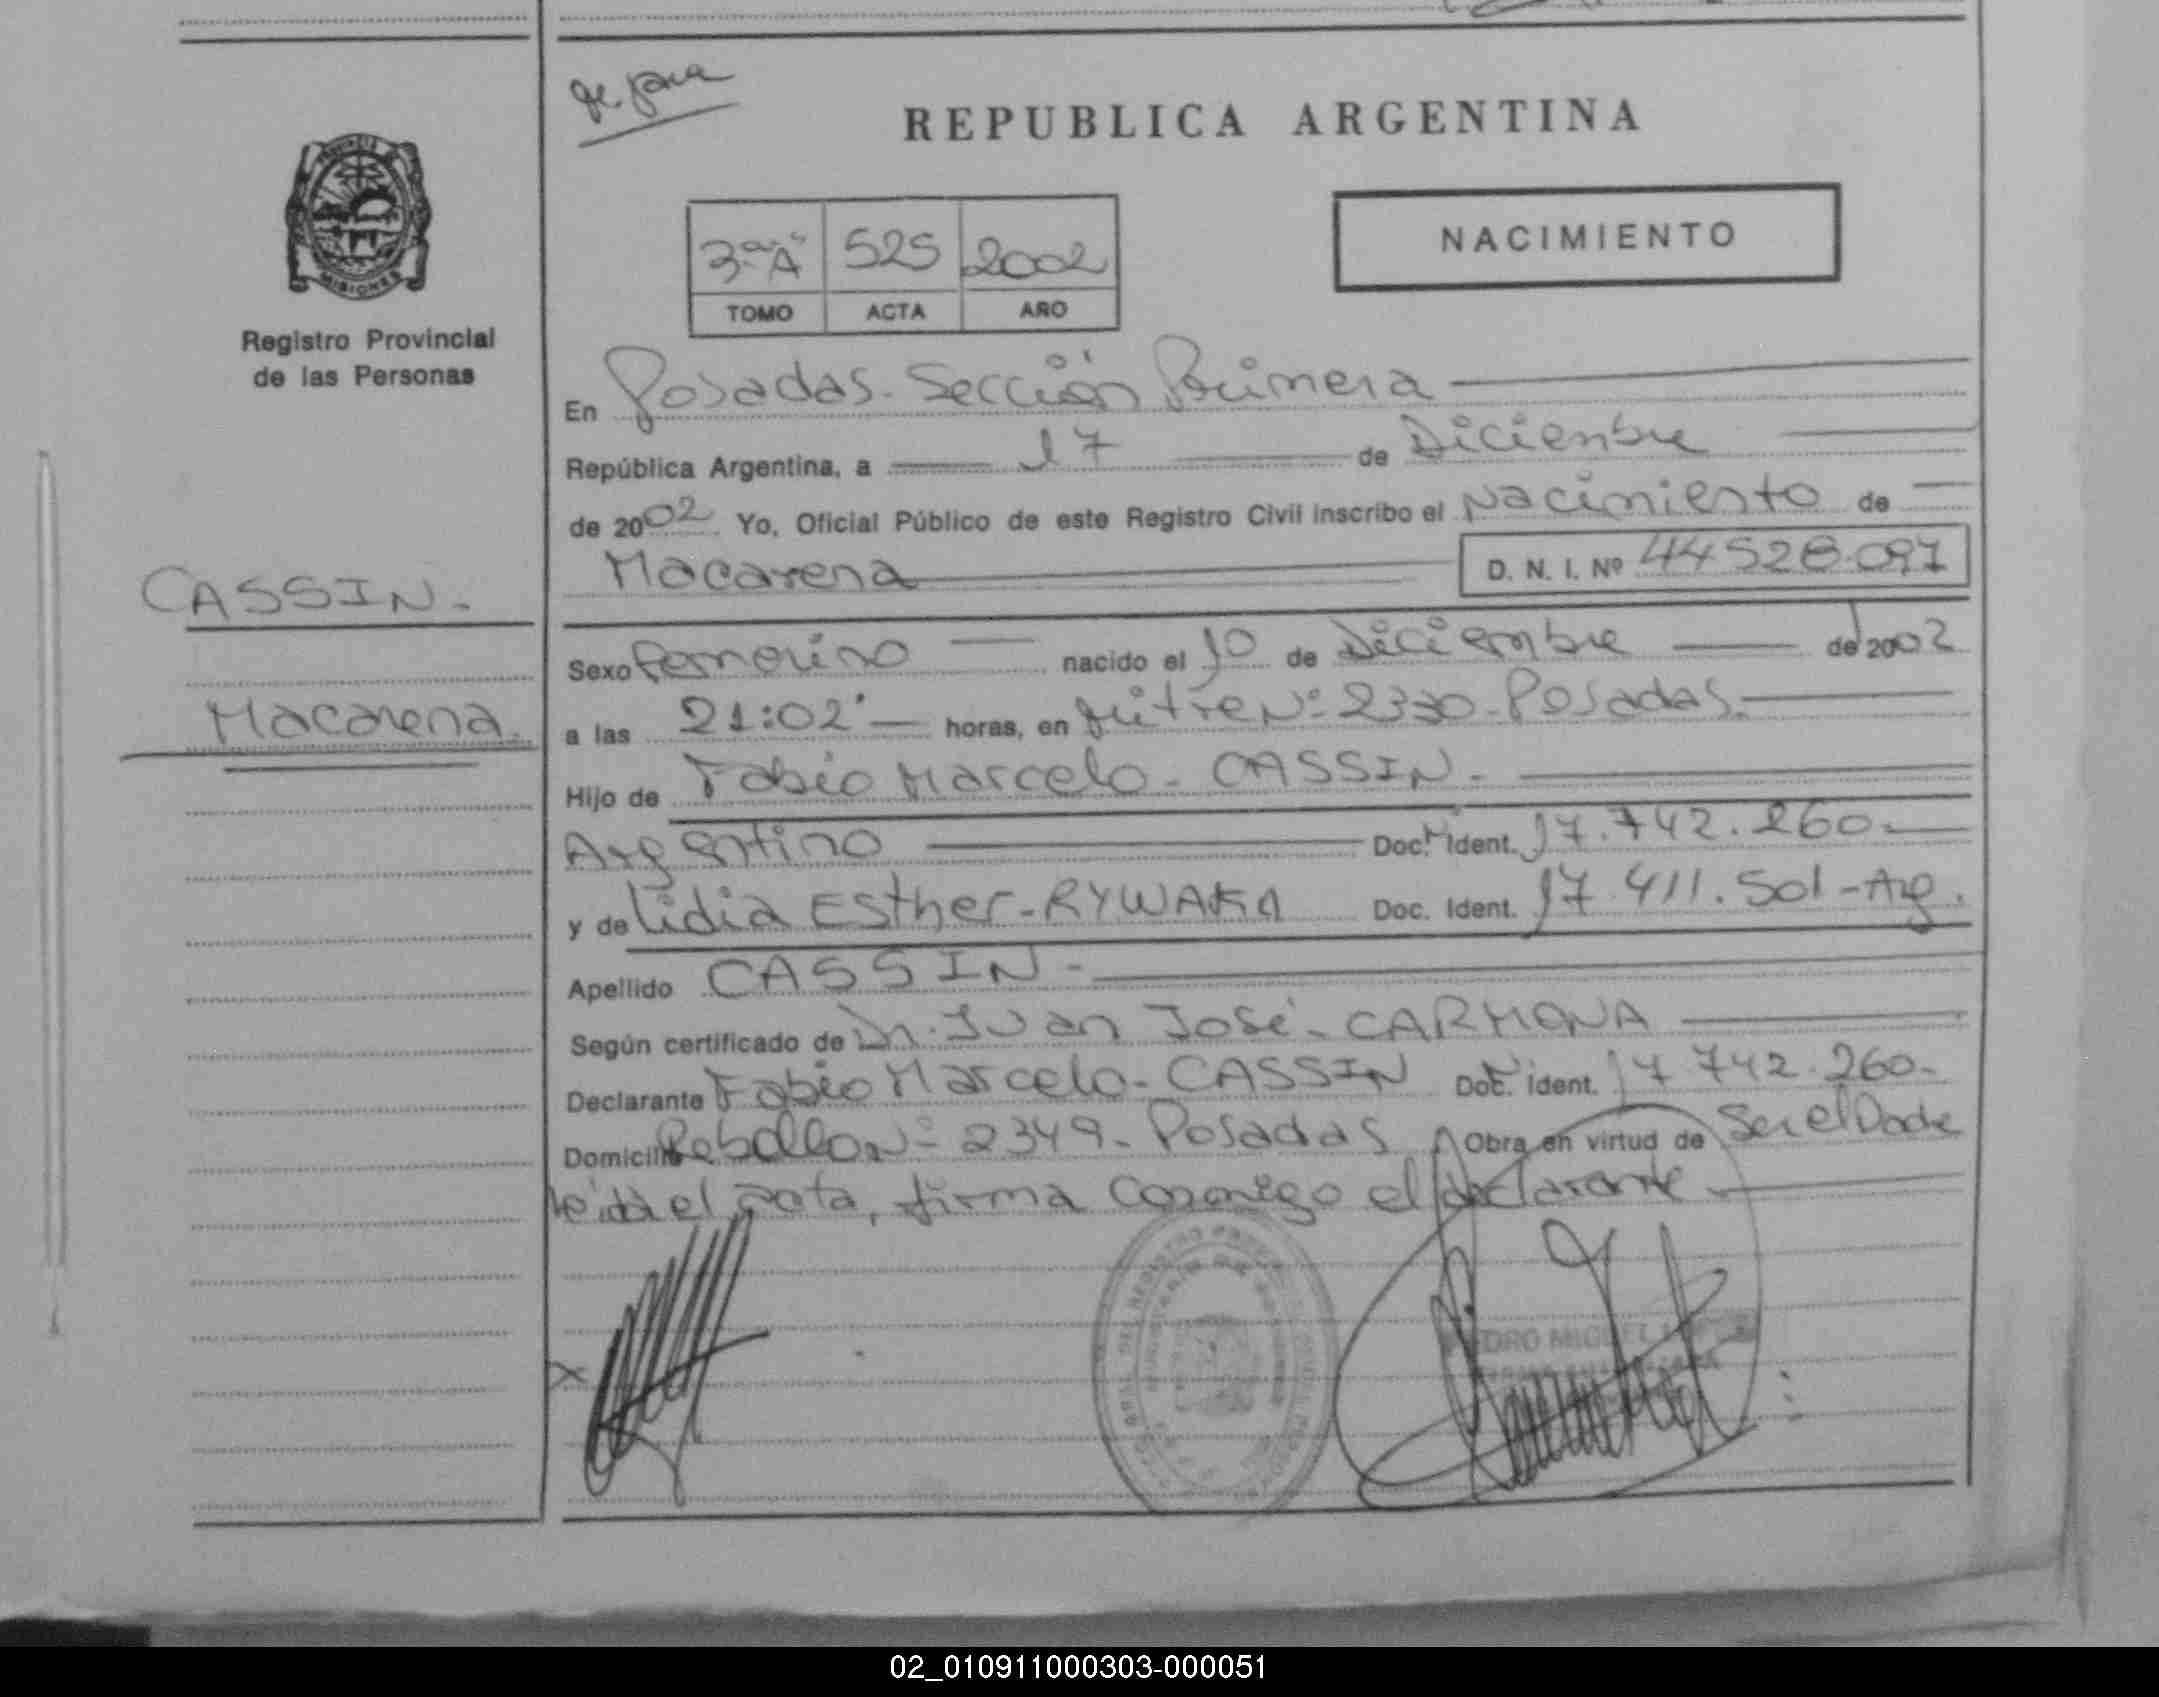 REPUBLICA ARGENTINA
PROVINCIA DE
MISIONES
Registro Provincial
de las Personas
3ª "A" 525 2002
TOMO ACTA AÑO
NACIMIENTO
En Posadas - Sección Primera
República Argentina, a 17 de Diciembre
de 2002 Yo, Oficial Público de este Registro Civil inscribo el Nacimiento de
Macarena D. N. I. Nº 44528.097
CASSIN -
Macarena
Sexo Femenino nacido el 10 de Diciembre de 2002
a las 21:02' horas, en Mitre Nº 2330 - Posadas.
Hijo de Fabio Marcelo - CASSIN -
Argentino Doc. Ident. 17.742.260 -
y de Lidia Esther - RYWAKA Doc. Ident. 17.411.501 - Arg.
Apellido CASSIN -
Según certificado de Dr. Juan José - CARMONA
Declarante Fabio Marcelo - CASSIN Doc. Ident. 17 742.260 -
Domicilio Nº 2349 - Posadas Obra en virtud de Ser el Padre
leída el acta, firma conmigo el declarante
02_010911000303-000051